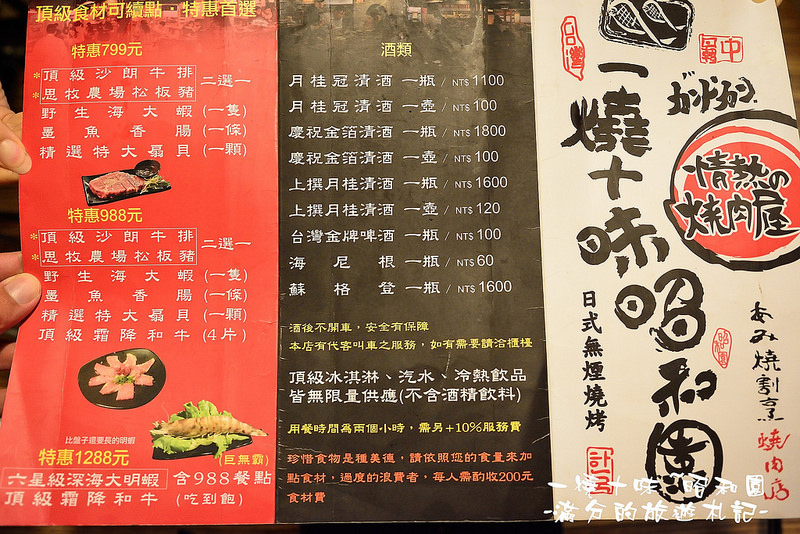 頂級食材可續點．特惠首選
特惠799元
*頂級沙朗牛排
*思牧農場松板豬
二選一
野生海大蝦(一隻)
墨魚香腸(一條)
精選特大扇貝(一顆)
特惠988元
*頂級沙朗牛排
*思牧農場松板豬
二選一
野生海大蝦(一隻)
墨魚香腸(一條)
精選特大扇貝(一顆)
頂級霜降和牛(4片)
比盤子還要長的明蝦
特惠1288元
(巨無霸)
六星級深海大明蝦 含988餐點
頂級霜降和牛(吃到飽)
酒類
月桂冠清酒 一瓶 / NT$ 1100
月桂冠清酒 一壺 / NT$ 100
慶祝金箔清酒 一瓶 / NT$ 1800
慶祝金箔清酒 一壺 / NT$ 100
上撰月桂清酒 一瓶 / NT$ 1600
上撰月桂清酒 一壺 / NT$ 120
台灣金牌啤酒 一瓶 / NT$ 100
海尼根 一瓶 / NT$ 60
蘇格登 一瓶 / NT$ 1600
酒後不開車，安全有保障
本店有代客叫車之服務，如有需要請洽櫃檯
頂級冰淇淋、汽水、冷熱飲品
皆無限量供應(不含酒精飲料)
用餐時間為兩個小時，需另+10%服務費
珍惜食物是種美德，請依照您的食量來加
點食材，過度的浪費者，每人需酌收200元
食材費
台灣
一燒十味昭和園
日式無煙燒烤
情熱の
焼肉屋
あみ焼割烹
焼肉店
一燒十味 昭和園
-滿分的旅遊札記-